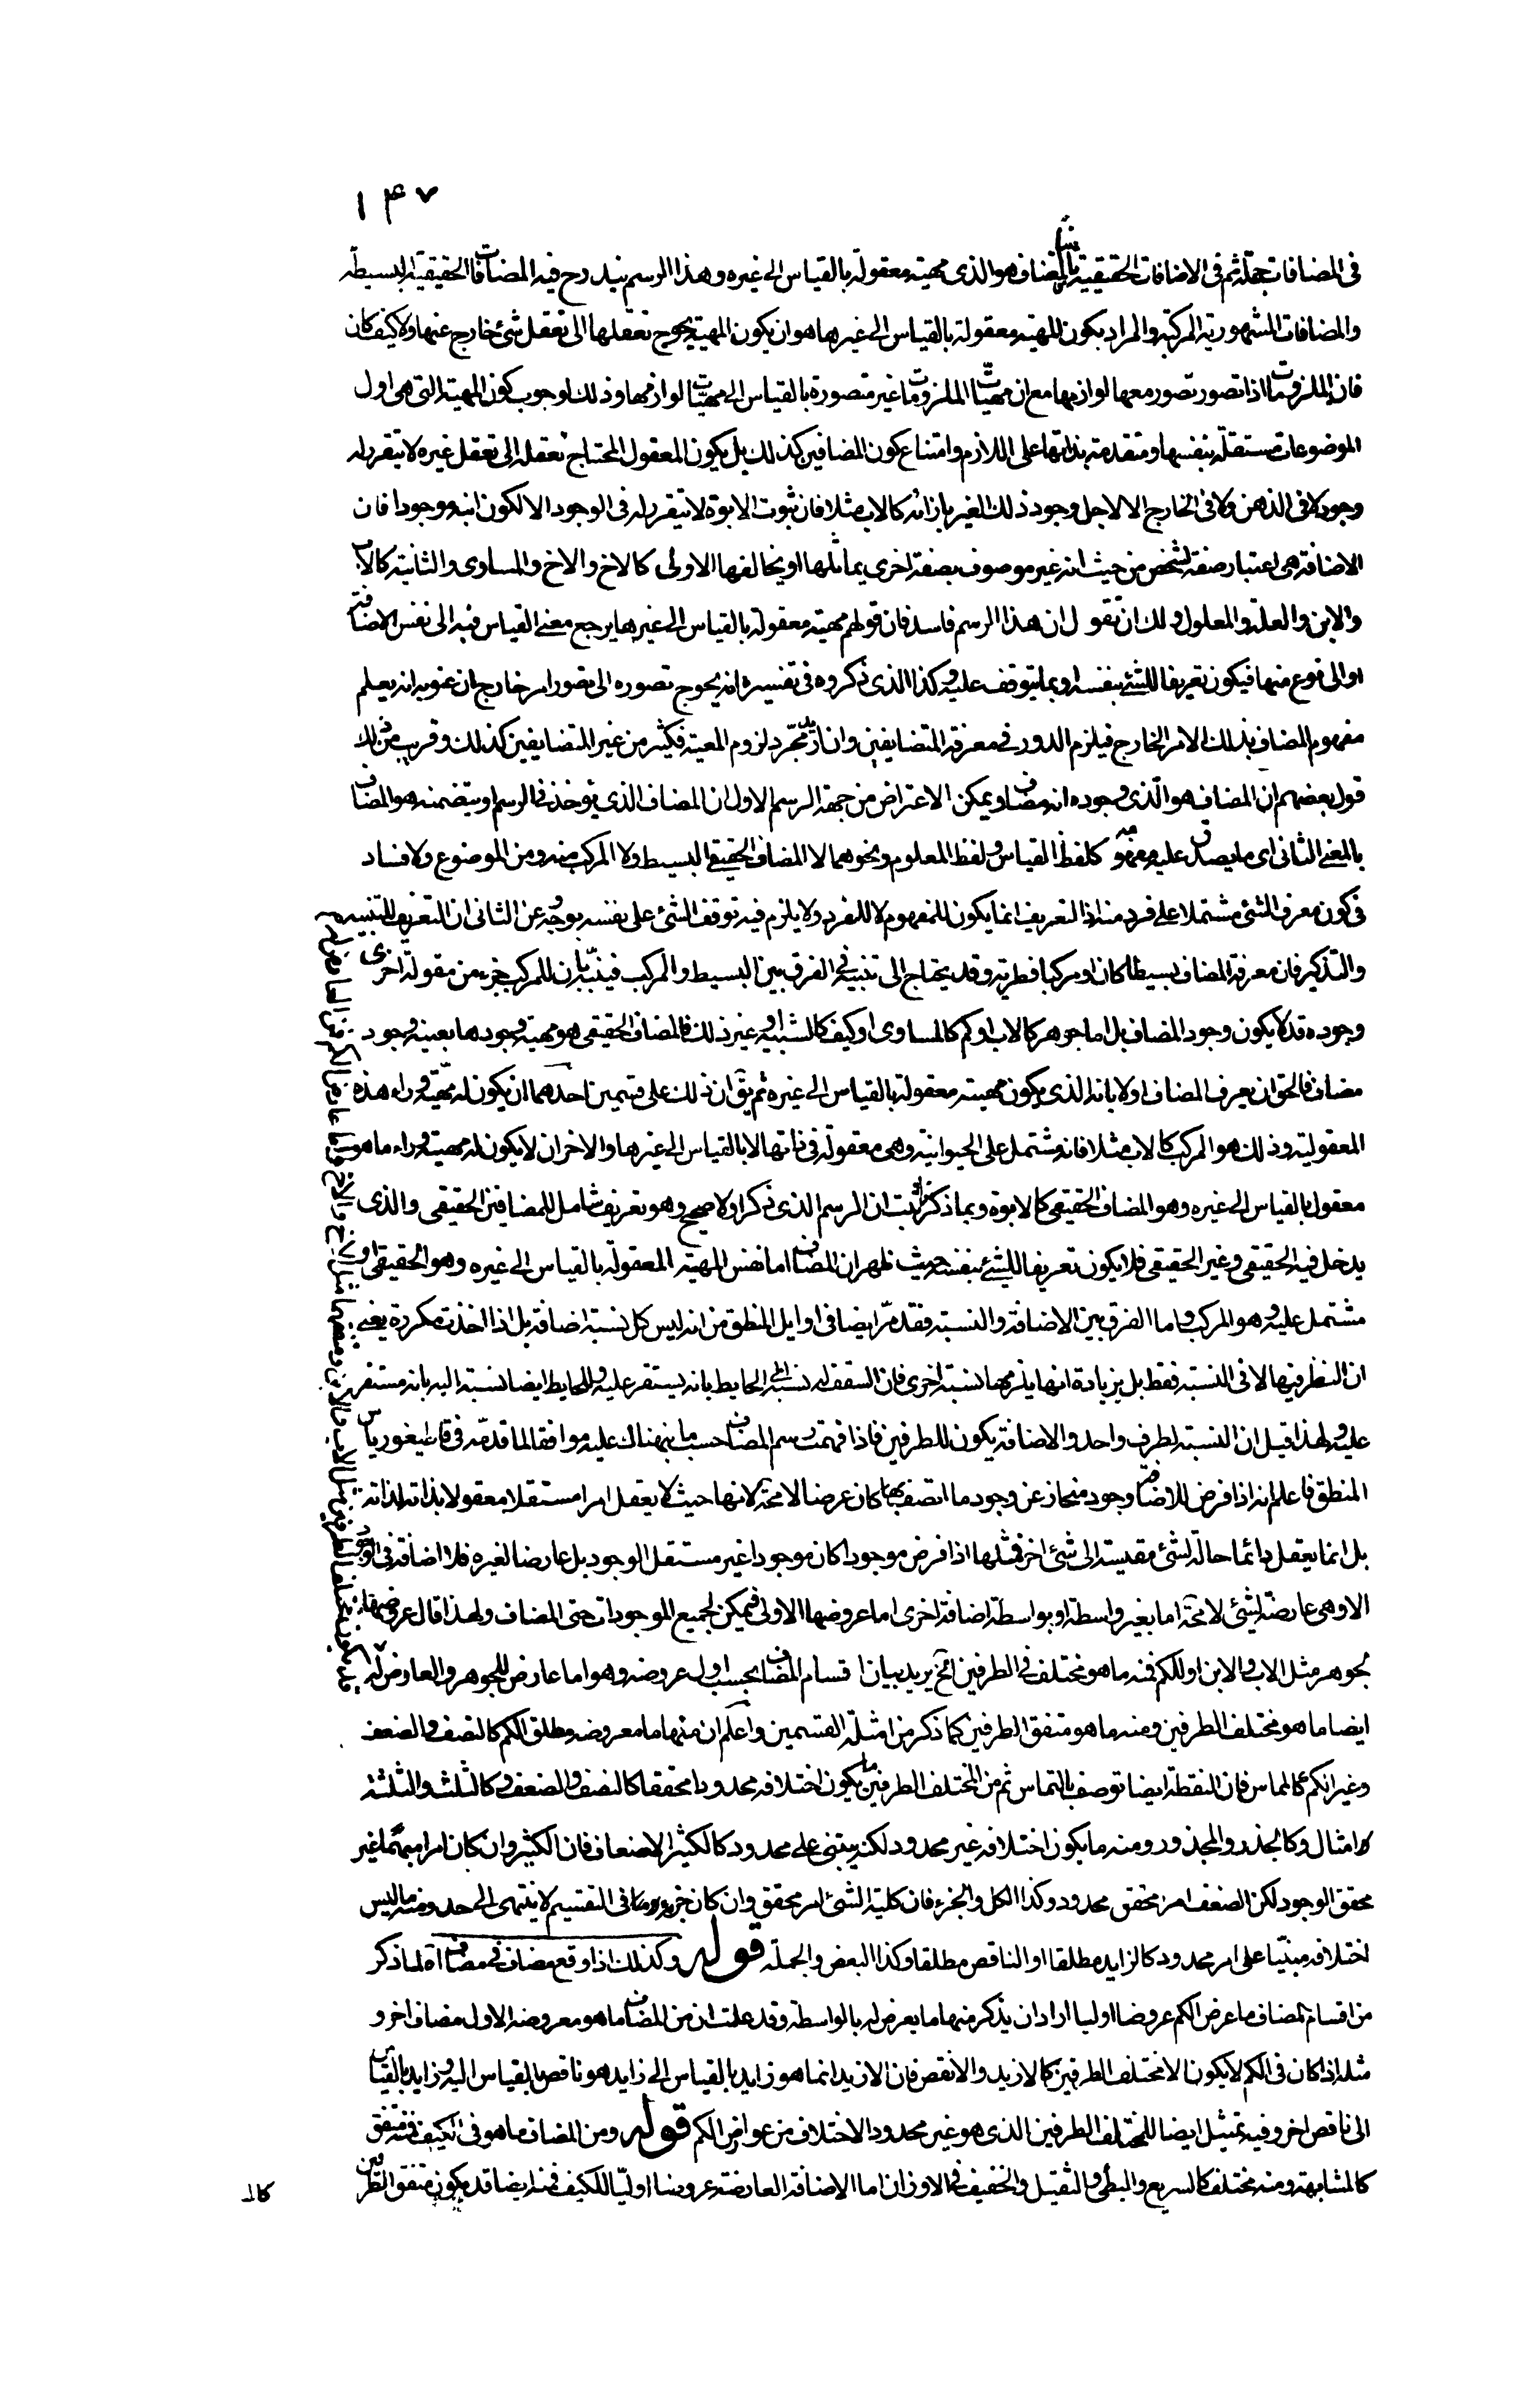 ١٤٧
فى المضافات جملة ثم فى الاضافات الحقيقية بالمضاف هو الذى مهيته معقولة بالقياس الى غيره وهذا الرسم يندرج فيه المضافات الحقيقية البسيطة
والمضافات المشهورية المركبة والمراد بكون المهية معقولة بالقياس الى غيرها هو ان يكون المهية يحوج تعقلها الى تعقل شئ خارج عنها ولا كيف كان
فان الملزومات اذا تصور تصور معها لوازمها مع ان مهيات الملزومات غير متصورة بالقياس الى مهيات لوازمها وذلك لوجوب كون المهية التى هى اول
الموضوعات مستقلة بنفسها ومتقدمة بذاتها على اللازم وامتناع كون المضافين كذلك بل يكون المعقول المحتاج تعقله الى تعقل غيره لا يتقرر له
وجود لا فى الذهن ولا فى الخارج الا لاجل وجود ذلك الغير بازائه كالاب مثلا فان ثبوت الابوة لا يتقرر له فى الوجود الا لكون ابنه موجودا فان
الاضافة هى اعتبار صفة لشخص من حيث انه غير موصوف بصفة اخرى يماثلها او يخالفها الاولى كالاخ والاخ والمساوى والثانية كالاب
والابن والعلة والمعلول ولك ان تقول ان هذا الرسم فاسد فان قولهم مهيته معقولة بالقياس الى غيرها يرجع معنى القياس فيه الى نفس الاضافة
او الى نوع منها فيكون تعريفا للشئ بنفسه او بما يتوقف عليه وكذا الذى ذكروه فى تفسيره انه يحوج تصوره الى تصور امر خارج ان عنو به انه يعلم
مفهوم المضاف بذلك الامر الخارج فيلزم الدور فى معرفة المتضايفين وان اريد مجرد لزوم المعية فكثير من غير المتضايفين كذلك وقريب من ذلك
قول بعضهم ان المضاف هو الذى وجوده انه مضاف ويمكن الاعتراض من جهة الرسم الاول ان المضاف الذى يؤخذ فى الرسم او يتضمنه هو المضاف
بالمعنى الثانى اى ما يصدق عليه مفهومه كلفظ القياس ولفظ المعلوم ونحوهما لا المضاف الحقيقى البسيط ولا المركب منه ومن الموضوع ولا فساد
فى كون معرف الشئ مشتملا على فرد منه اذ التعريف انما يكون للمفهوم لا للفرد ولا يلزم فيه توقف الشئ على نفسه بوجه عن الثانى ان التعريف للتنبيه
والتذكير فان معرفة المضاف بسيطا كان او مركبا فطرية وقد يحتاج الى تنبيه فى الفرق بين البسيط والمركب فينبه بان للمركب جزء من مقولة اخرى
وجوده قد لا يكون وجود المضاف بل اما جوهر كالاب او كم كالمساوى او كيف كالشبيه او غير ذلك فالمضاف الحقيقى هو مهية وجودها بعينه وجود
مضاف فالحق ان يعرف المضاف اولا بانه الذى يكون مهيته معقولة بالقياس الى غيره ثم يق ان ذلك على قسمين احدهما ان يكون له مهية وراء هذه
المعقولية وذلك هو المركب كالاب مثلا فانه مشتمل على الحيوانية وهى معقولة فى ذاتها لا بالقياس الى غيرها والاخر ان لا يكون له مهية وراء ما هو
معقول بالقياس الى غيره وهو المضاف الحقيقى كالابوة وبما ذكر ثبت ان الرسم الذى ذكر اولا صحيح وهو تعريف شامل للمضافين الحقيقى والذى
يدخل فيه الحقيقى وغير الحقيقى فلا يكون تعريفا للشئ بنفسه حيث ظهر ان المضاف اما نفس المهية المعقولة بالقياس الى غيره وهو الحقيقى او
مشتمل عليه وهو المركب واما الفرق بين الاضافة والنسبة فقد مر ايضا فى اوايل المنطق من انه ليس كل نسبة اضافة بل اذا اخذت مكررة يعنى
ان النظر فيها لا فى النسبة فقط بل بزيادة انها يلزمها نسبة اخرى فان السقف له نسبة الى الحايط بانه يستقر عليه وللحايط ايضا نسبة اليه بانه مستقر
عليه ولهذا قيل ان النسبة لطرف واحد والاضافة يكون للطرفين فاذا فهمت رسم المضاف حسب ما نبهناك عليه موافقا لما قدمه فى قاطيغورياس
المنطق فاعلم انه اذا فرض للاضافة وجود منحاز عن وجود ما اتصف بها كان عرضا لا محة لانها حيث لا يعقل امرا مستقلا معقولا بذاته لذاته
بل انما يعقل دائما حالة لشئ مقيسة الى شئ اخر فمثلها اذا فرض موجودا كان موجودا غير مستقل الوجود بل عارضا لغيره فلا اضافة فى الوجود
الا وهى عارضة لشئ لا محة اما بغير واسطة او بواسطة اضافة اخرى اما عروضها الاولى فيمكن لجميع الموجودات حتى المضاف ولهذا قال عروضها
لجوهر مثل الاب والابن او للكم فمنه ما هو مختلف فى الطرفين الخ يريد بيان اقسام المضاف بحسب اول عروضه وهو اما عارض للجوهر والعارض له
ايضا ما هو مختلف الطرفين ومنه ما هو متفق الطرفين كما ذكر من امثلة القسمين واعلم ان منها ما معروضه مطلق الكم كالنصف والضعف
وغير الكم كالمماس فان النقطة ايضا توصف بالتماس ثم من المختلف الطرفين ما يكون اختلافه محدودا محققا كالنصف والضعف وكالثلث والثلثة
الامثال وكالجذر والمجذور ومنه ما يكون اختلافه غير محدود لكنه يبتنى على محدود كالكثير الاضعاف فان الكثير وان كان امرا مبهما غير
محقق الوجود لكن الضعف امر محقق محدود وكذا الكل والجزء فان كلية الشئ امر محقق وان كان جزء ما فى التقسيم لا ينتهى الى حد ومنه ما ليس
اختلافه مبنيا على امر محدود كالزايد مطلقا او الناقص مطلقا وكذا البعض والجملة قوله وكذلك اذا وقع مضاف فى مضاف آه لما ذكر
من اقسام المضاف ما عرض الكم عروضا اوليا اراد ان يذكر منها ما يعرض له بالواسطة وقد علمت ان من المضاف ما هو معروضه الاول مضاف اخر و
مثله اذا كان فى الكم لا يكون الا مختلف الطرفين كالازيد والانقص فان الازيد انما هو زايد بالقياس الى زايد هو ناقص بالقياس اليه وزايد بالقياس
الى ناقص اخر وفيه تمثيل ايضا للمختلف الطرفين الذى هو غير محدود الاختلاف من عوارض الكم قوله ومن المضاف ما هو فى الكيف فمنه متفق
كالمشابهة ومنه مختلف كالسريع والبطئ والثقيل والخفيف فى الاوزان اما الاضافة العارضة عروضا اوليا للكيف فمنه ايضا قد يكون متفق الطرفين
كالـ